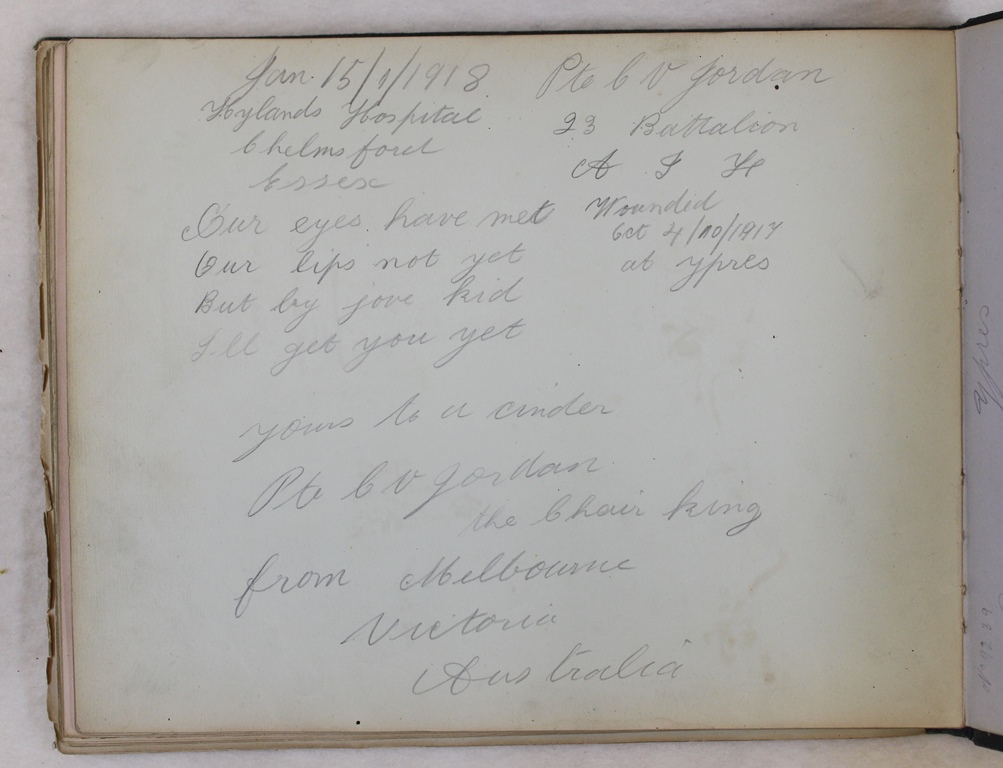 Jan. 15/1/1918
Hylands Hospital
Chelmsford
Essex
Pte C V Jordan
23 Battalion
A I F
Wounded
Oct 4/10/1917
at Ypres
Our eyes have met
Our lips not yet
But by jove kid
I'll get you yet
yours to a cinder
Pte C V Jordan
the Chair king
from Melbourne
Victoria
Australia
Ypres